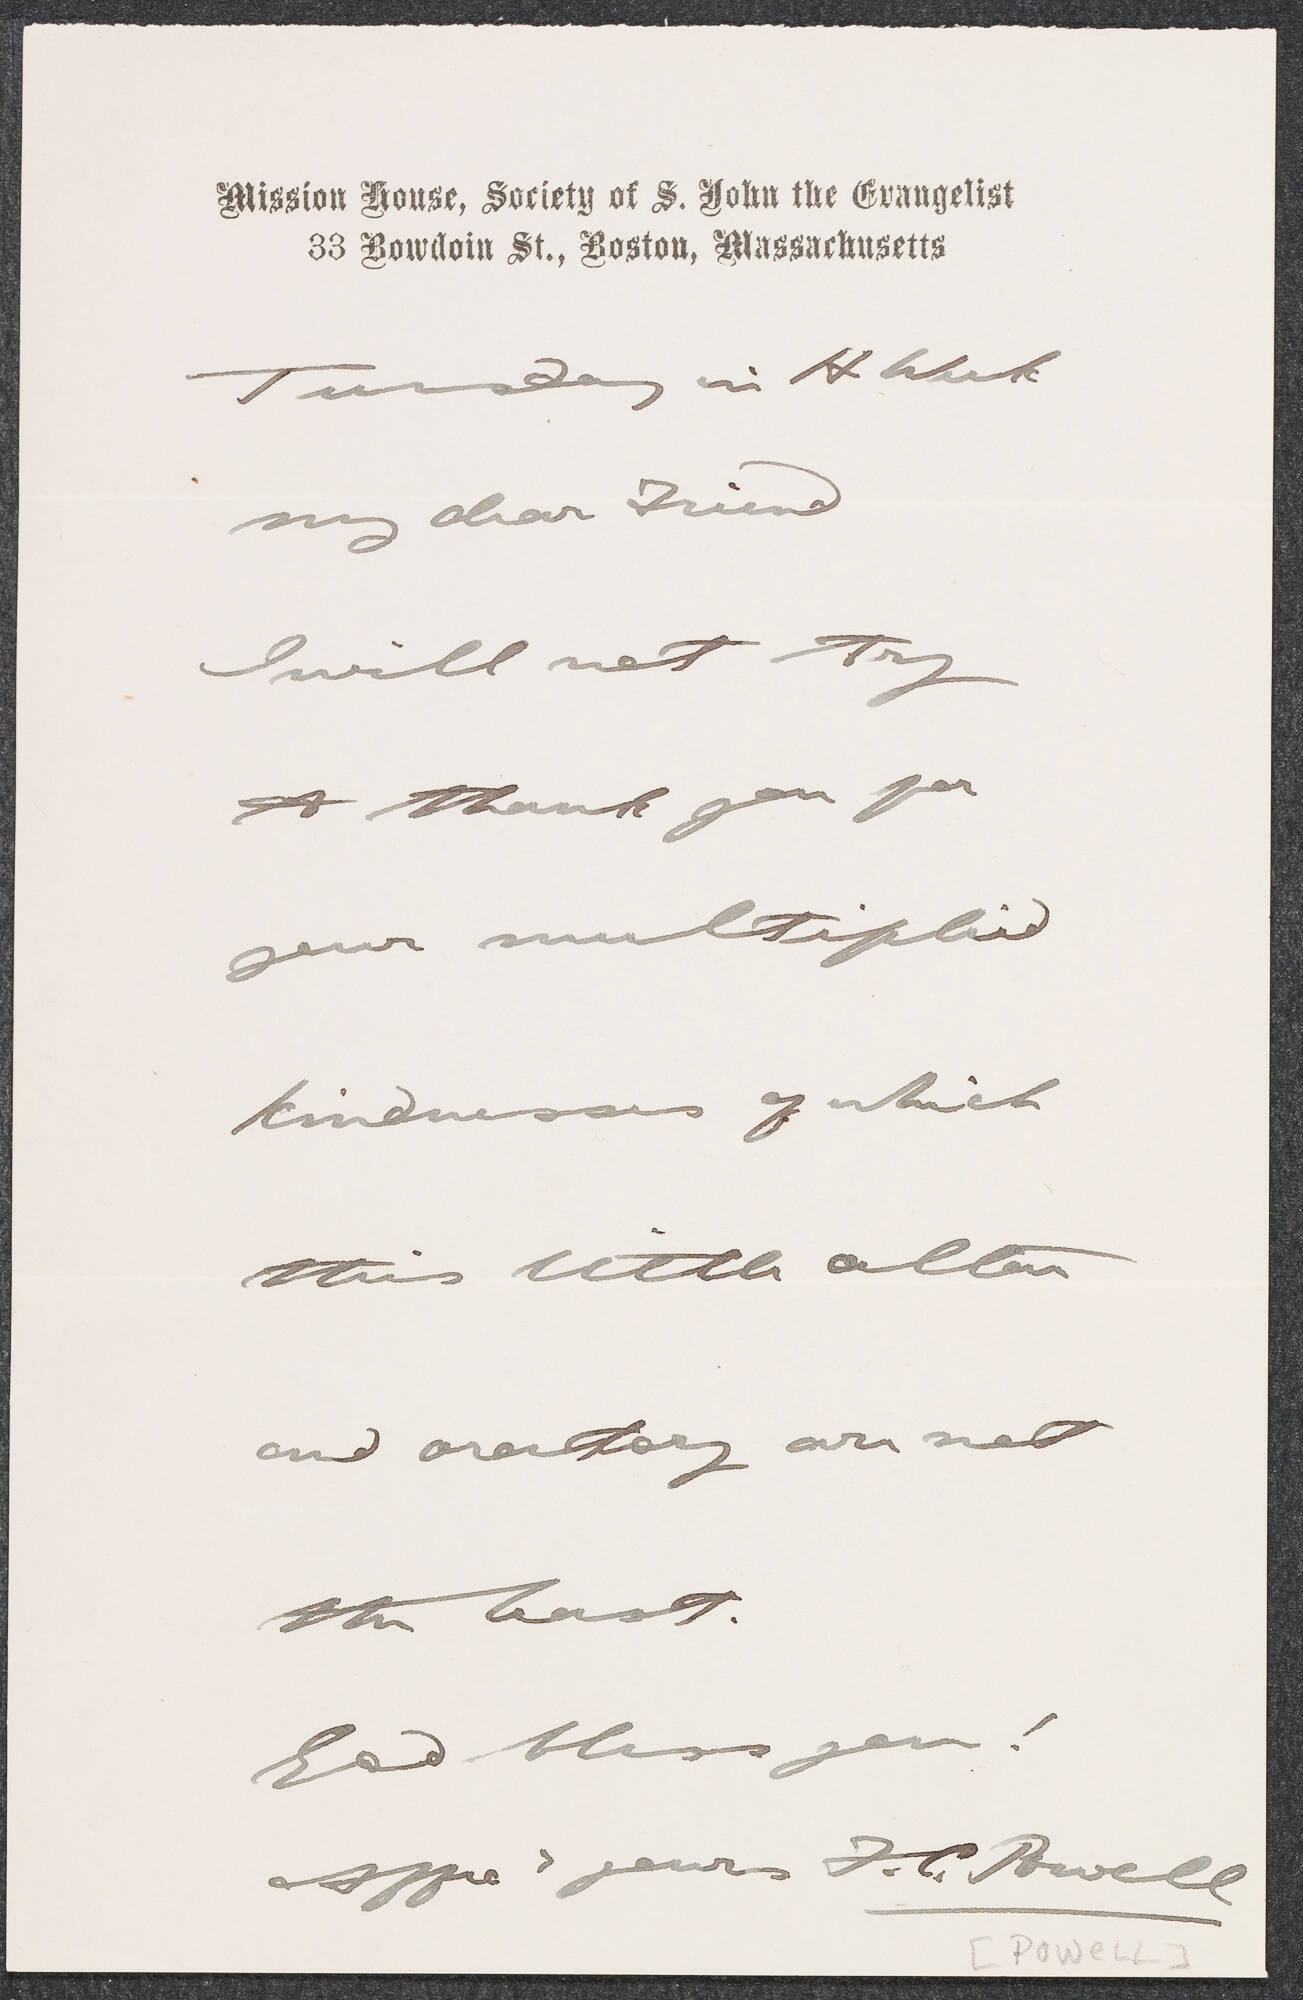 Mission House, Society of S. John the Evangelist
33 Bowdoin St., Boston, Massachusetts
Tuesday in H Week
my dear Friend
I will not try
to thank you for
your multiplied
kindnesses of which
this little altar
and oratory are not
the least.
God bless you!
yours F. C. Powell
[POWELL]